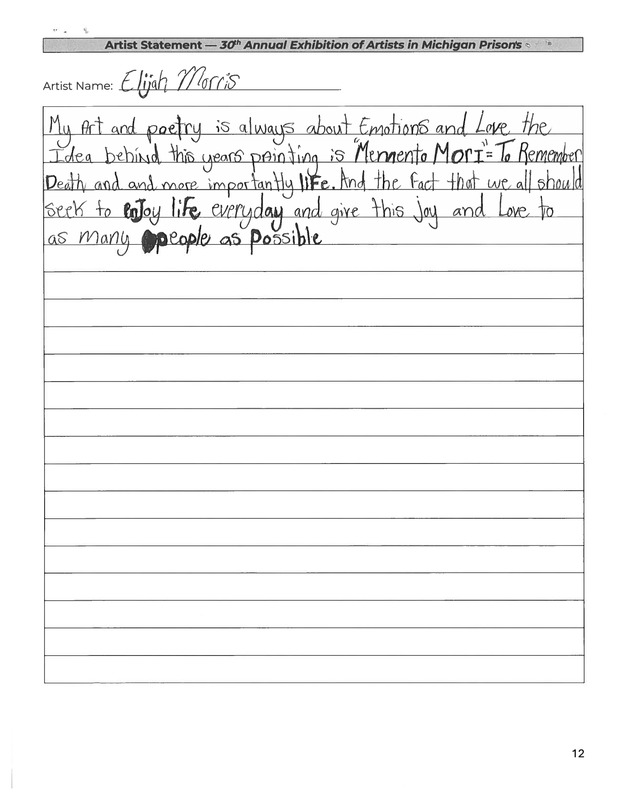 Artist Statement — 30th Annual Exhibition of Artists in Michigan Prisons
Artist Name: Elijah Morris
My Art and poetry is always about Emotions and Love the
Idea behind this years painting is "Memento Mori" = To Remember
Death and and more importantly life. And the fact that we all should
seek to enjoy life everyday and give this joy and Love to
as many people as possible
12